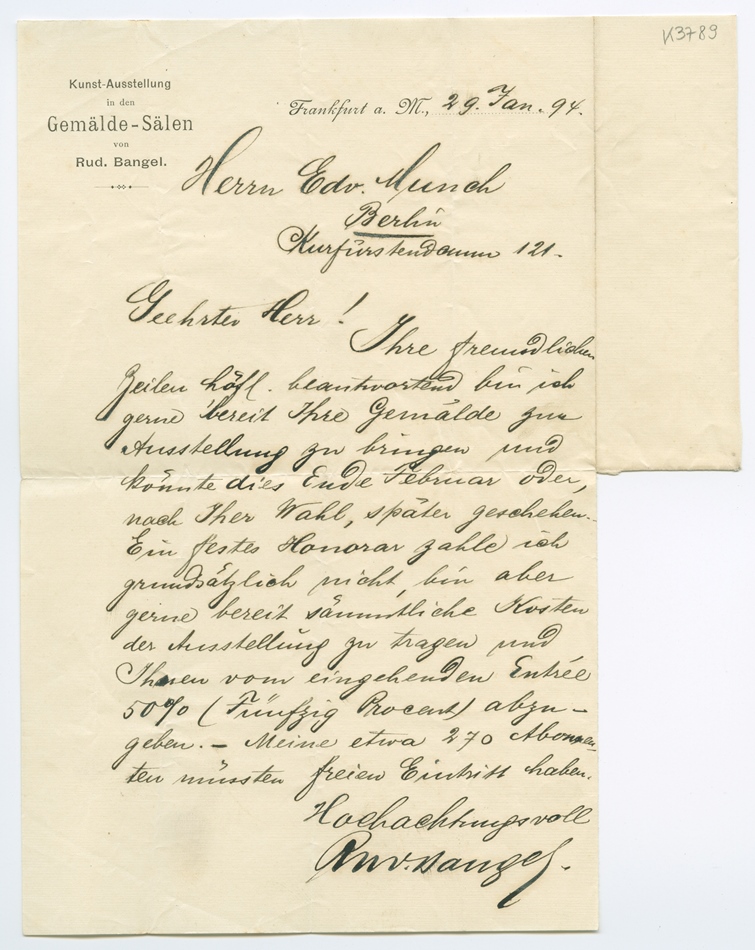 K3789
Kunst-Ausstellung
in den
Gemälde-Sälen
von
Rud. Bangel.
Frankfurt a. M., 29. Jan. 94.
Herrn Edv. Munch
Berlin
Kurfürstendamm 121.
Geehrter Herr!
Ihre freundlichen
Zeilen höfl. beantwortend bin ich
gerne bereit Ihre Gemälde zur
Ausstellung zu bringen und
könnte dies Ende Februar oder,
nach Iher Wahl, später geschehen.
Ein festes Honorar zahle ich
grundsätzlich nicht, bin aber
gerne bereit sämmtliche Kosten
der Ausstellung zu tragen und
Ihnen vom eingehenden Entrée
50% (Fünfzig Procent) abzu-
geben. – Meine etwa 270 Abonnen-
ten müssten freien Eintritt haben.
Hochachtungsvoll
Rud. Bangel.